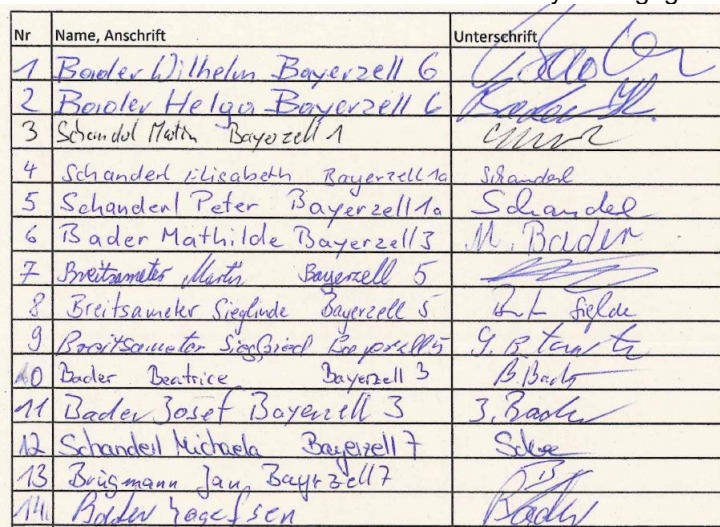 Nr Name, Anschrift Unterschrift
1 Bader Wilhelm Bayerzell 6
2 Bader Helga Bayerzell 6 Bader H.
3 Schanderl Martin Bayerzell 1
4 Schanderl Elisabeth Bayerzell 1a Schanderl
5 Schanderl Peter Bayerzell 1a Schanderl
6 Bader Mathilde Bayerzell 3 M. Bader
7 Breitsameter Martin Bayerzell 5
8 Breitsameter Sieglinde Bayerzell 5
9 Breitsameter Siegfried Bayerzell 5
10 Bader Beatrice Bayerzell 3 B. Bader
11 Bader Josef Bayerzell 3 J. Bader
12 Schanderl Michaela Bayerzell 7
13 Brügmann Jan, Bayrzell 7
14. Bader Bader